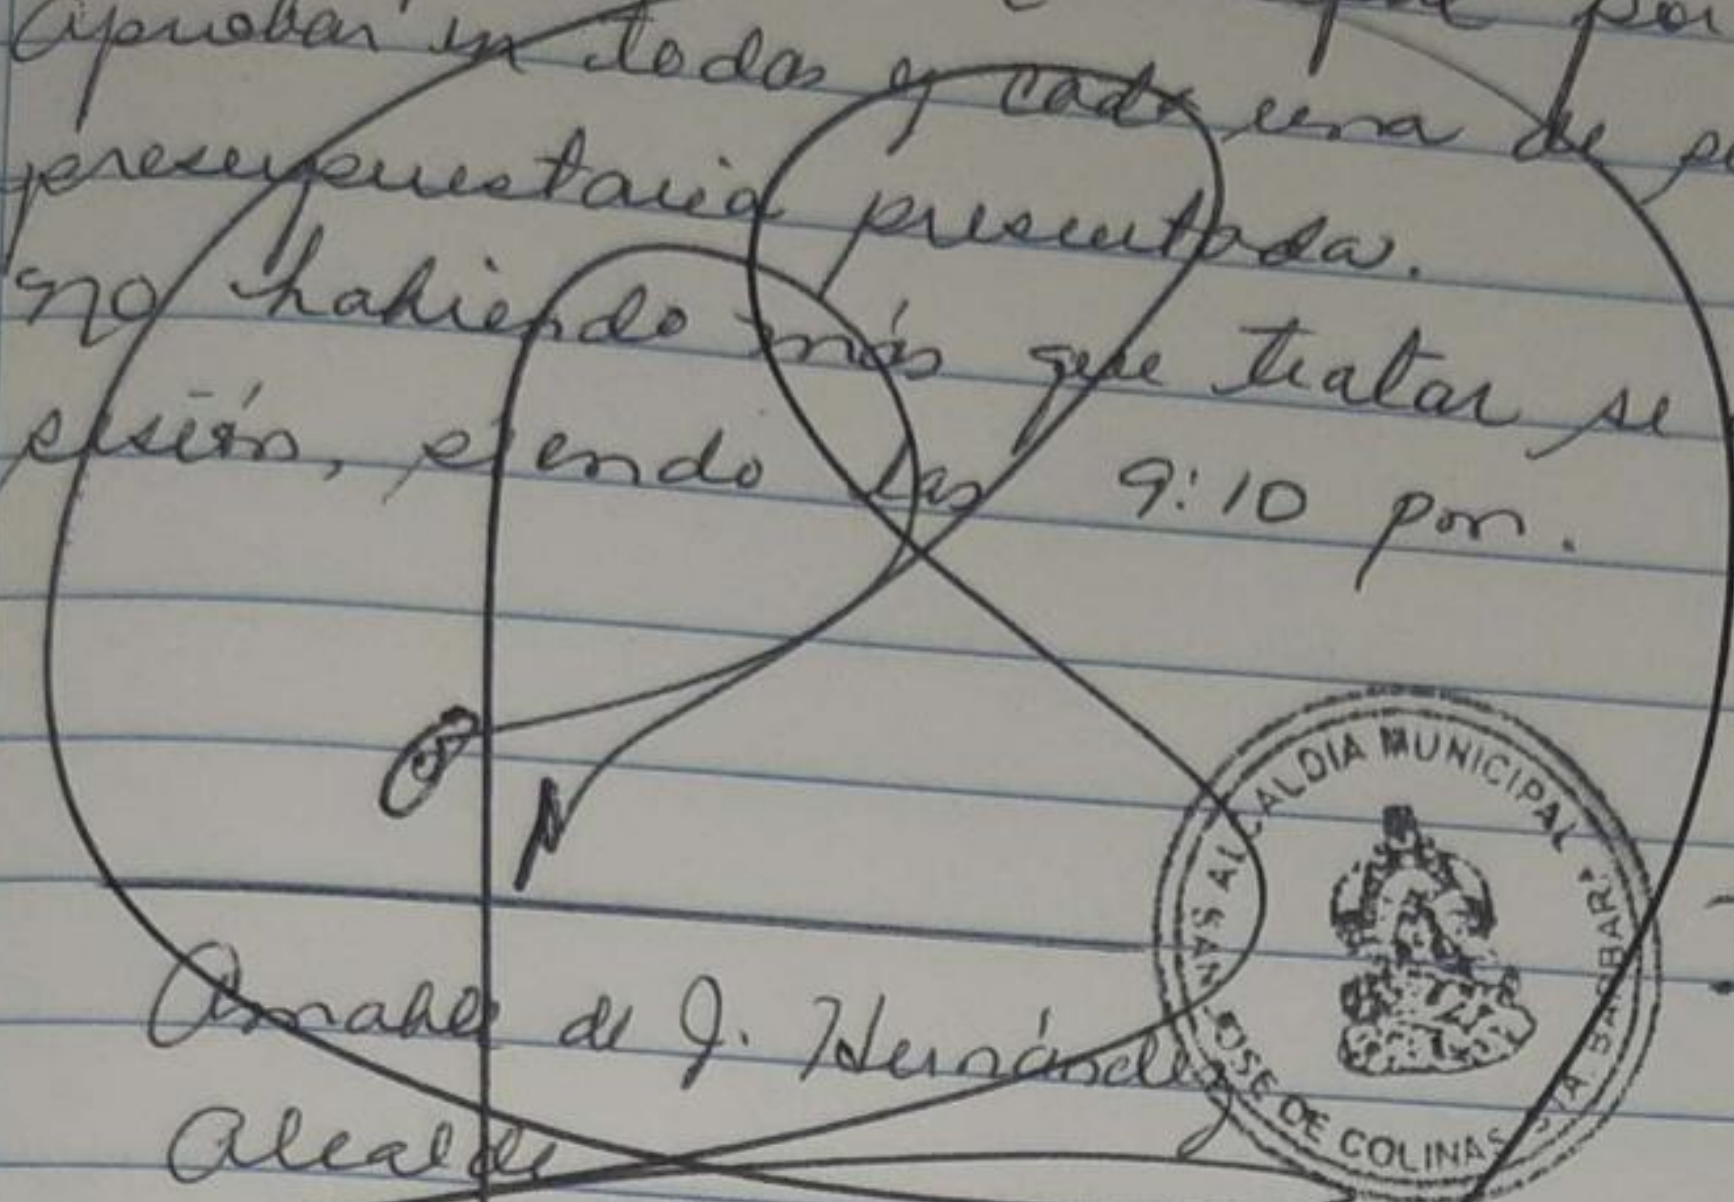 aprobar in todas y cada una de
presupuestaria presentada.
no habiendo más que tratar se
sesión, siendo las 9:10 pm.
Amable de J. Hernández
Alcalde
ALCALDIA MUNICIPAL
SAN JOSE DE COLINAS STA. BARBARA